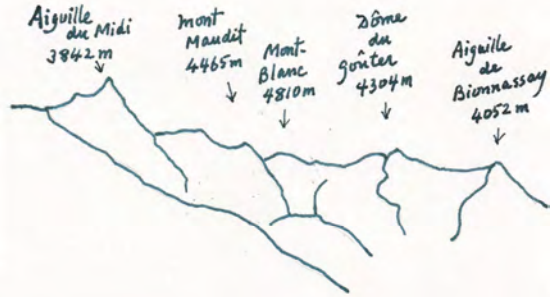 Aiguille
du Midi
3842m
mont
Maudit
4465m
Mont-
Blanc
4810m
Dôme
du
goûter
4304m
Aiguille
de
Bionnassay
4052m